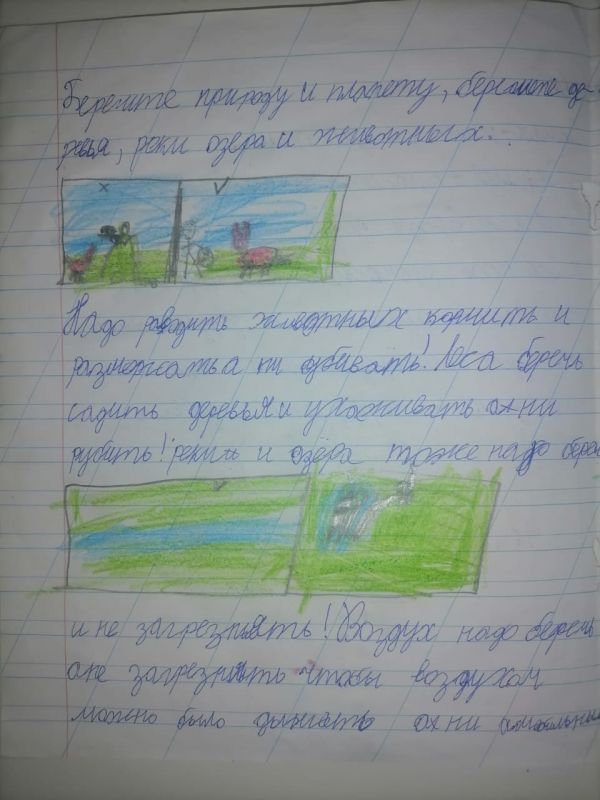 Берегите природу и планету, берегите де-
ревья, реки озера и животных.
Надо разводить животных кормить и
размножатьа ни убивать! Леса беречь
садить деревья и ухаживать ахни
рубить! реки и озёра тоже надо береч
и не загрезнять! Воздух надо беречь
ане загрезнять чтобы воздухом
можно было дышать ахни